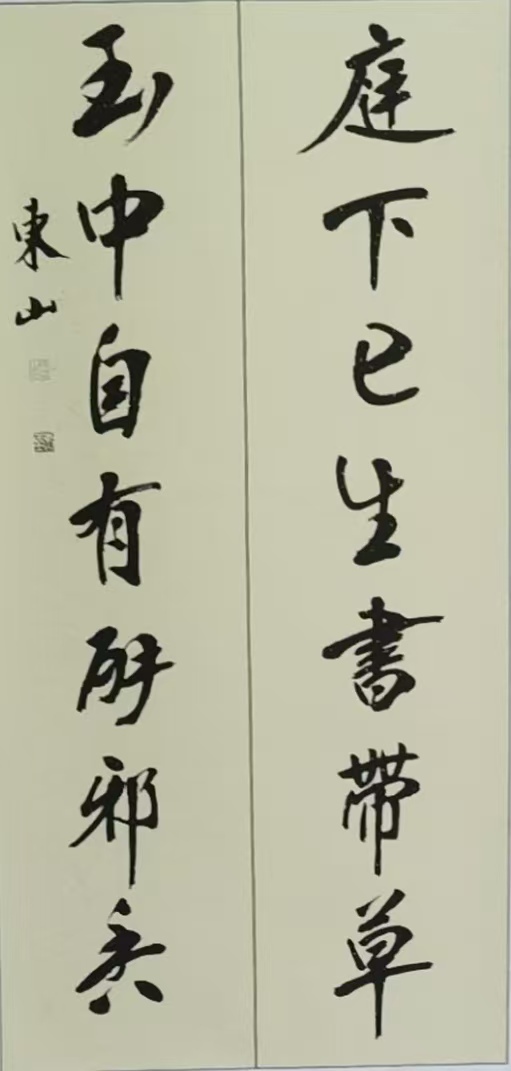 庭下已生書帶草
玉中自有辟邪香
東山